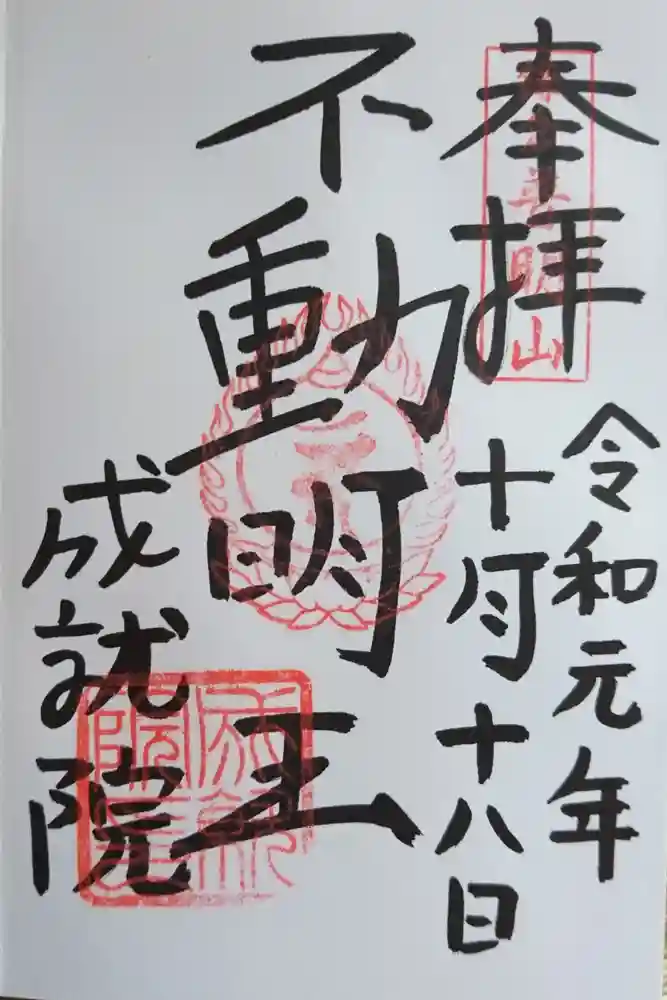 奉拝
令和元年
十月十八日
不動明王
成就院
明山